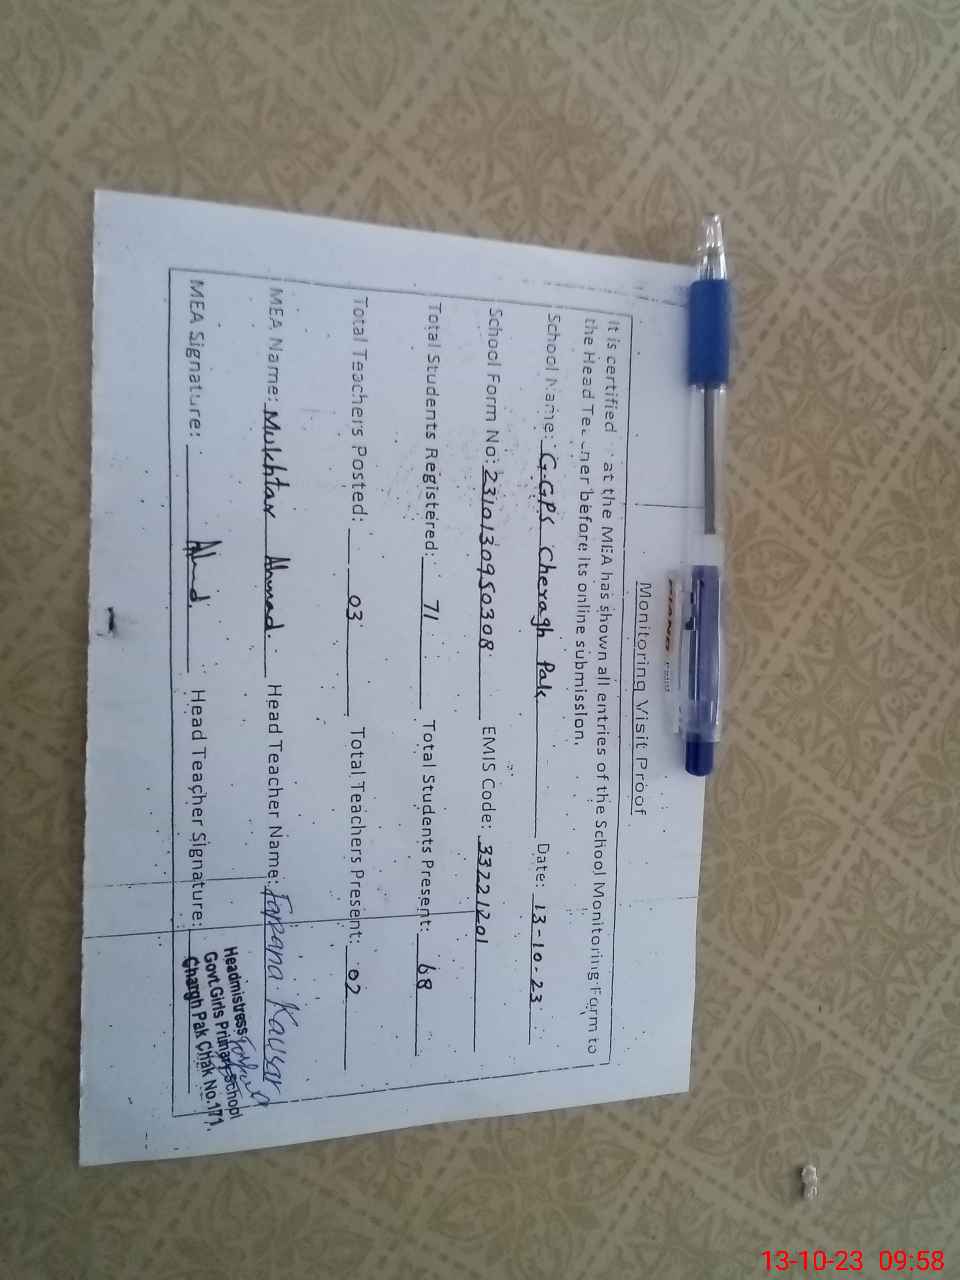 Monitoring Visit Proof
It is certified at the MEA has shown all entries of the School Monitoring Form to
the Head Te ner before its online submission.
School Name: G.GPS Cheragh Pak Date: 13-10-23
School Form No: 2310130950308 EMIS Code: 33221201
Total Students Registered: 71 Total Students Present: 68
Total Teachers Posted: 03 Total Teachers Present: 02
MEA Name: Mukhtar Ahmad. Head Teacher Name: Farzana Kausar
MEA Signature: Ahmd. Head Teacher Signature:
Headmistress
Govt.Girls Primary School
Chargh Pak Chak No.171.
PIANO Point
13-10-23 09:58